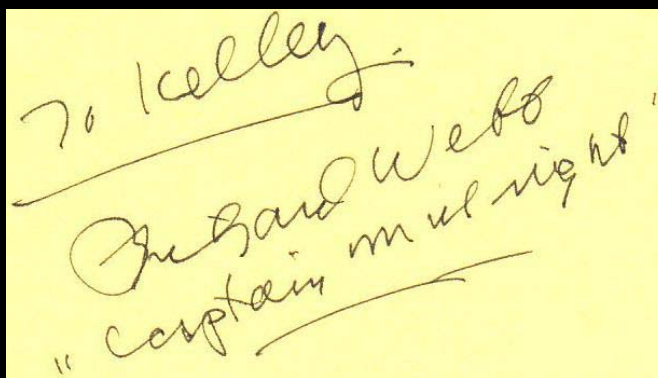 To Kelley.
Richard Webb
"Captain Midnight"